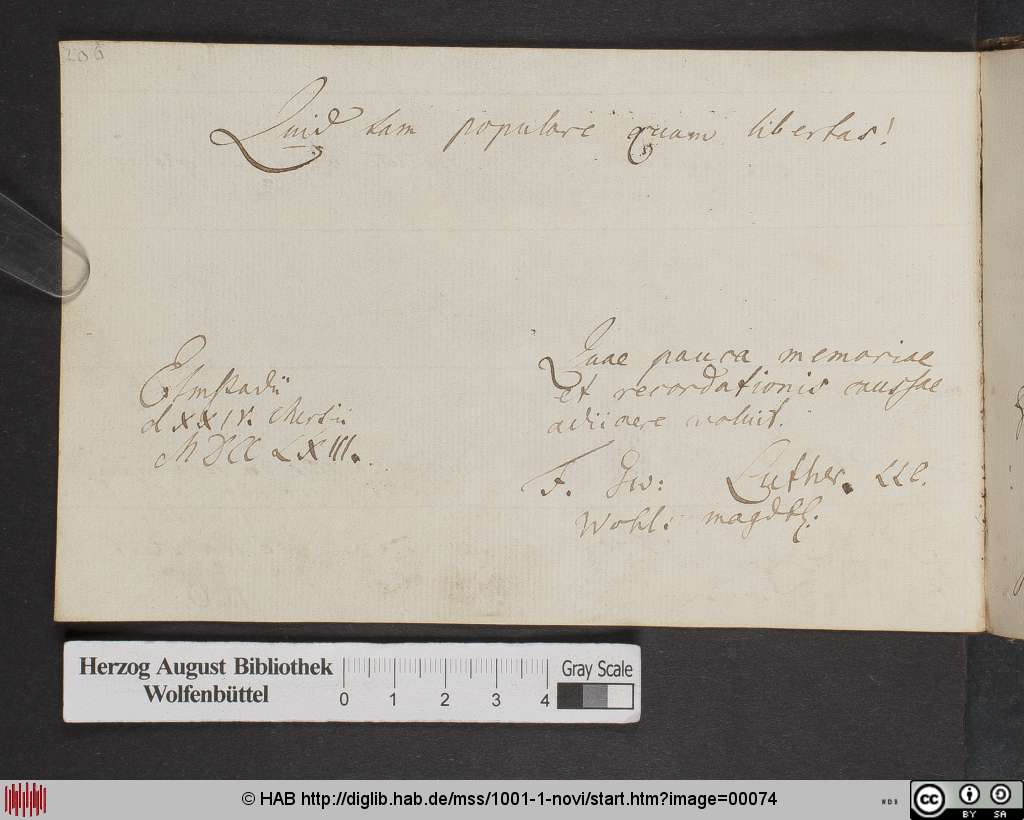 206
Quid tam populare quam libertas!
Elmstadii
d XXIV. Martii
MDCCLXIII.
Quae pauca memoriae
et recordationis caussae
adiicere voluit.
F. Gw: Luther. LLC.
Wohl: magdb.
Herzog August Bibliothek
Wolfenbüttel
0 1 2 3 4
Gray Scale
© HAB http://diglib.hab.de/mss/1001-1-novi/start.htm?image=00074
cc BY SA